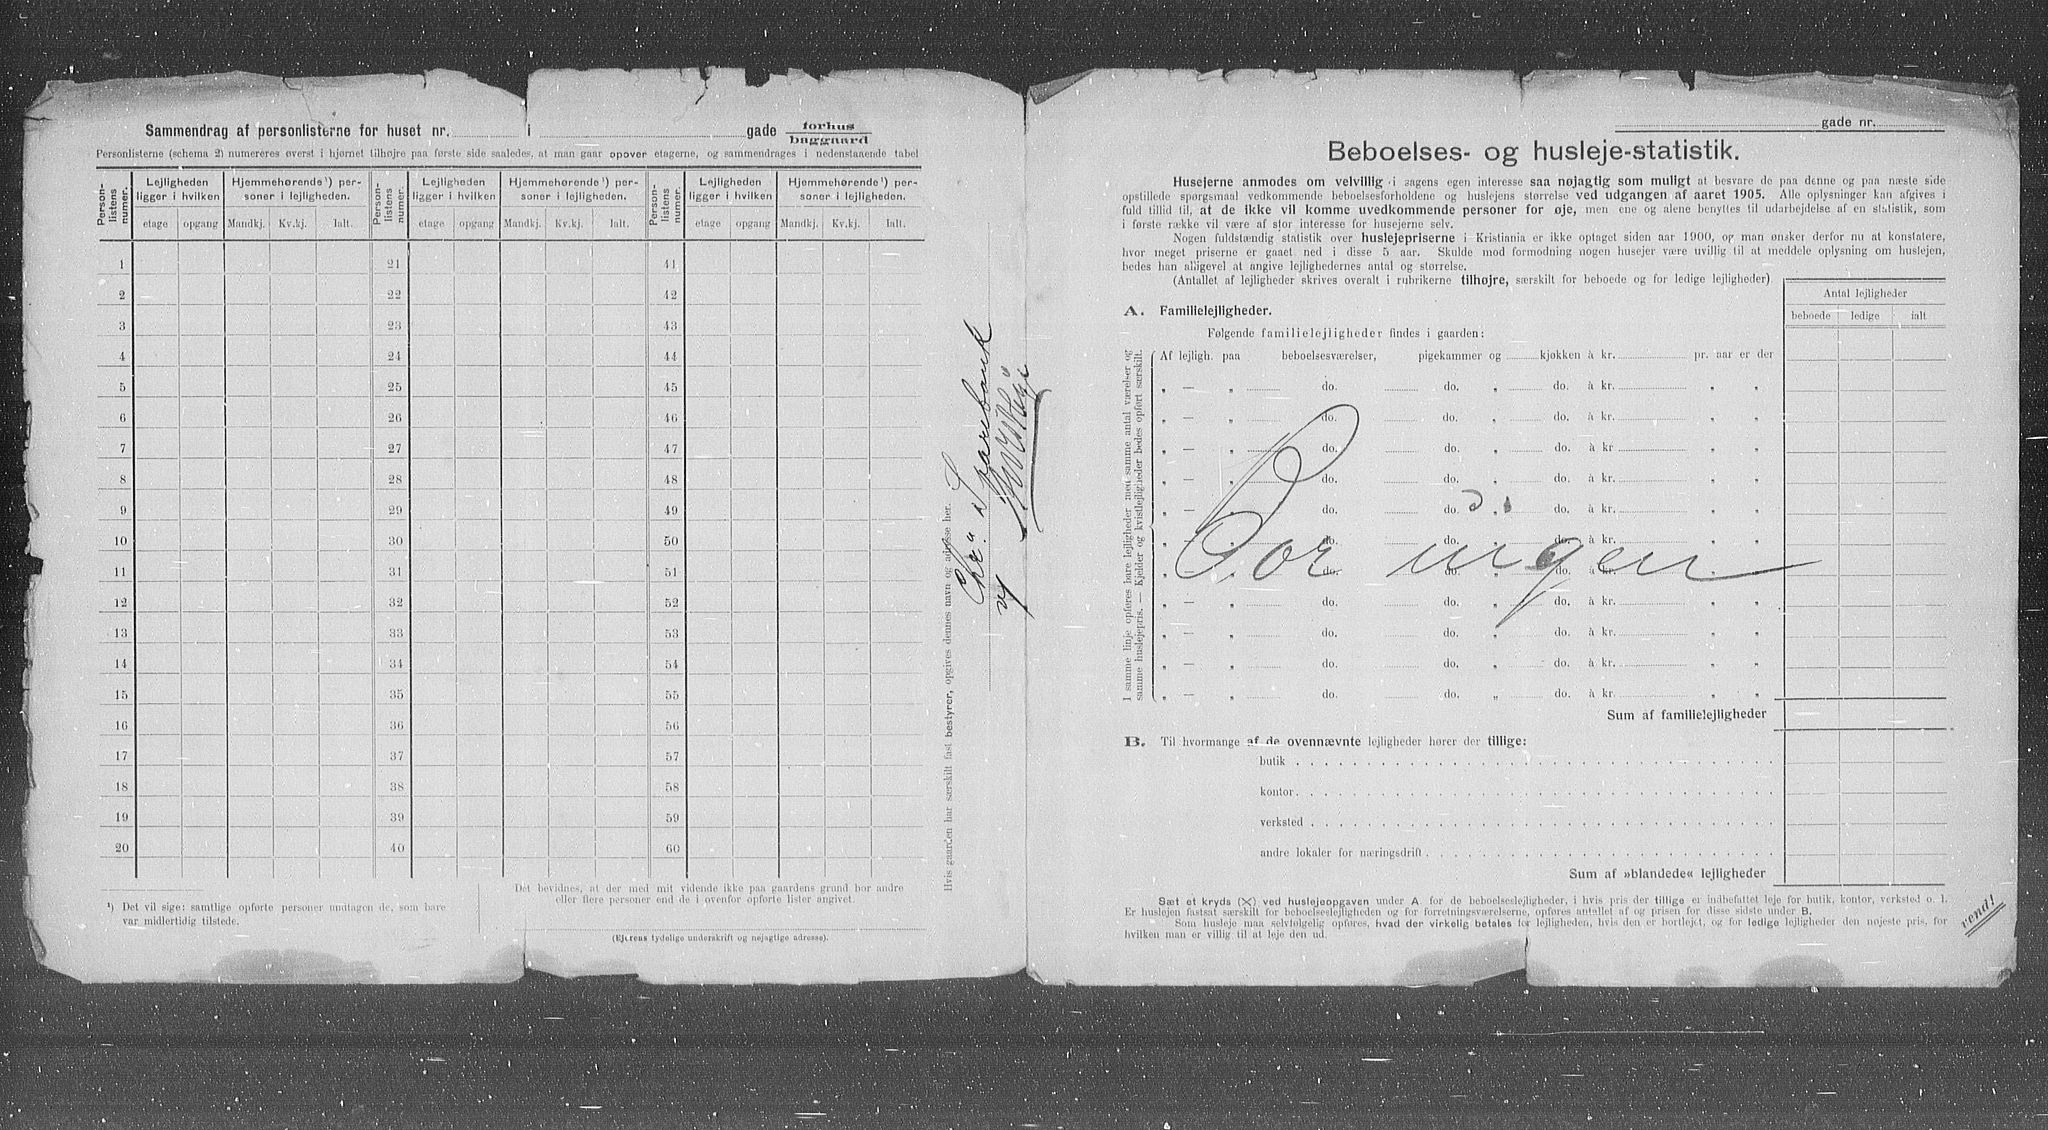 Sammendrag af personlisterne for huset nr. i gade forhus
baggaard
Personlisterne (schema 2) numereres øverst i hjørnet tilhøjre paa første side saaledes, at man gaar opover etagerne, og sammendrages i nedenstaaende tabel
Person-listens numer. Lejligheden ligger i hvilken Hjemmehørende¹) personer i lejligheden. Person-listens numer. Lejligheden ligger i hvilken Hjemmehørende¹) personer i lejligheden. Person-listens numer. Lejligheden ligger i hvilken Hjemmehørende¹) personer i lejligheden.
etage opgang Mandkj. Kv.kj. Ialt. etage opgang Mandkj. Kv.kj. Ialt. etage opgang Mandkj. Kv.kj. Ialt.
1 21 41
2 22 42
3 23 43
4 24 44
5 25 45
6 26 46
7 27 47
8 28 48
9 29 49
10 30 50
11 31 51
12 32 52
13 33 53
14 34 54
15 35 55
16 36 56
17 37 57
18 38 58
19 39 59
20 40 60
¹) Det vil sige: samtlige opførte personer undtagen de, som bare
var midlertidig tilstede.
Det bevidnes, at der med mit vidende ikke paa gaardens grund bor andre
eller flere personer end de i ovenfor opførte lister angivet.
(Ejerens tydelige underskrift og nøjagtige adresse).
Hvis gaarden har særskilt fast bestyrer, opgives dennes navn og adresse her.
Chr.a Sparebank
gade nr.
Beboelses- og husleje-statistik.
Husejerne anmodes om velvillig i sagens egen interesse saa nøjagtig som muligt at besvare de paa denne og paa næste side
opstillede spørgsmaal vedkommende beboelsesforholdene og huslejens størrelse ved udgangen af aaret 1905. Alle oplysninger kan afgives i
fuld tillid til, at de ikke vil komme uvedkommende personer for øje, men ene og alene benyttes til udarbejdelse af en statistik, som
i første række vil være af stor interesse for husejerne selv.
Nogen fuldstændig statistik over huslejepriserne i Kristiania er ikke optaget siden aar 1900, og man ønsker derfor nu at konstatere,
hvor meget priserne er gaaet ned i disse 5 aar. Skulde mod formodning nogen husejer være uvillig til at meddele oplysning om huslejen,
bedes han alligevel at angive lejlighedernes antal og størrelse.
(Antallet af lejligheder skrives overalt i rubrikerne tilhøjre, særskilt for beboede og for ledige lejligheder)
Antal lejligheder
beboede ledige ialt
A. Familielejligheder.
Følgende familielejligheder findes i gaarden:
I samme linje opføres bare lejligheder med samme antal værelser og
samme huslejepris. — Kjelder og kvistlejligheder bedes opført særskilt.
Af lejligh. paa beboelsesværelser, pigekammer og kjøkken à kr. pr. aar er der
„ — „ do. do. „ do. à kr. „ „
„ — „ do. do. „ do. à kr. „ „
„ — „ do. do. „ do. à kr. „ „
„ — „ do. do. „ do. à kr. „ „
„ — „ do. do. „ do. à kr. „ „
„ — „ do. do. „ do. à kr. „ „
„ — „ do. do. „ do. à kr. „ „
Bor ingen
„ — „ do. do. „ do. à kr. „ „
„ — „ do. do. „ do. à kr. „ „
„ — „ do. do. „ do. à kr. „ „
„ — „ do. do. „ do. à kr. „ „
Sum af familielejligheder
B. Til hvormange af de ovennævnte lejligheder hører der tillige:
butik
kontor
verksted
andre lokaler for næringsdrift
Sum af »blandede« lejligheder
Sæt et kryds (X) ved huslejeopgaven under A. for de beboelseslejligheder, i hvis pris der tillige er indbefattet leje for butik, kontor, verksted o. l.
Er huslejen fastsat særskilt for beboelseslejligheden og for forretningsværelserne, opføres antallet af og prisen for disse sidste under B.
Som husleje maa selvfølgelig opføres, hvad der virkelig betales for lejligheden, hvis den er bortlejet, og for ledige lejligheder den nøjeste pris, for
hvilken man er villig til at leje den ud.
vend!